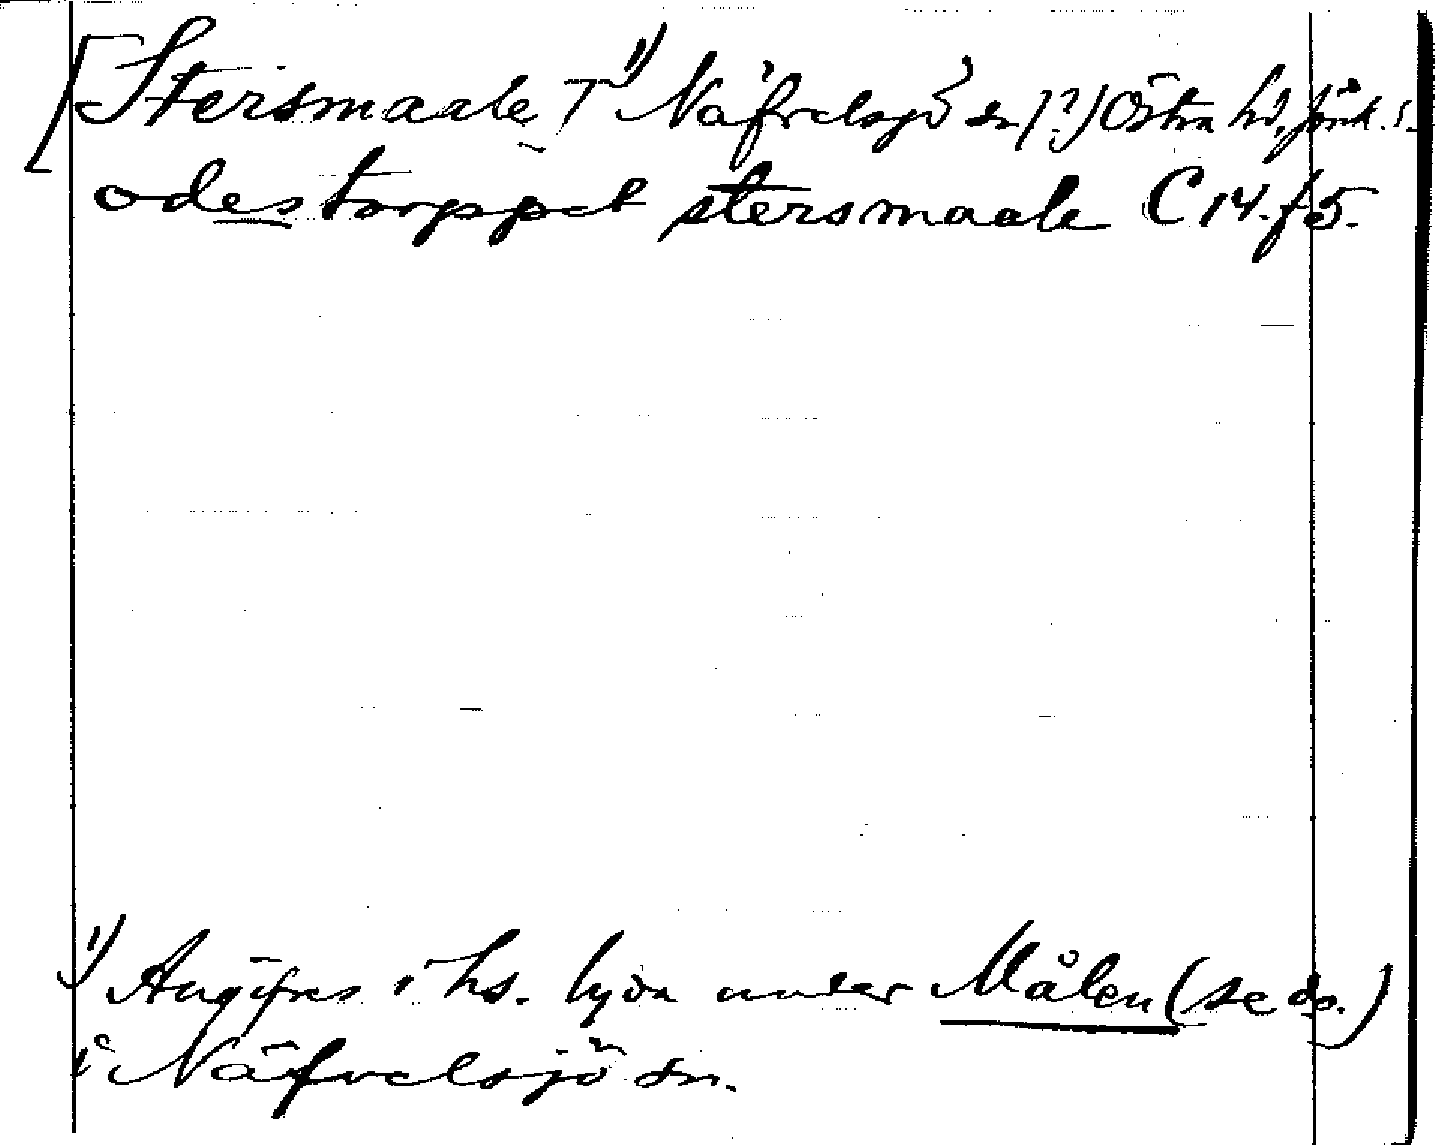 [Stersmaale T 1) Näfvelsjö sn (?) Östra hd, Jönk. l.
odestorppet stersmaale C 14. f 5.
1) Angifves i hs. lyda under Målen (se do.)
i Näfvelsjö sn.